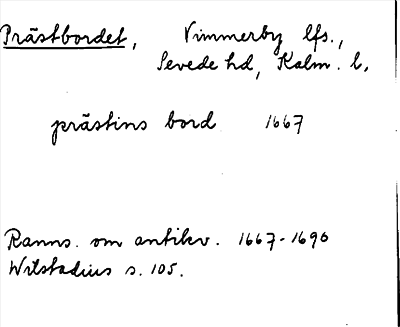 Prästbordet, Vimmerby lfs.,
Sevede hd, Kalm. l,
prästins bord 1667
Ranns. om antikv. 1667-1690
Wilstadius s. 105.